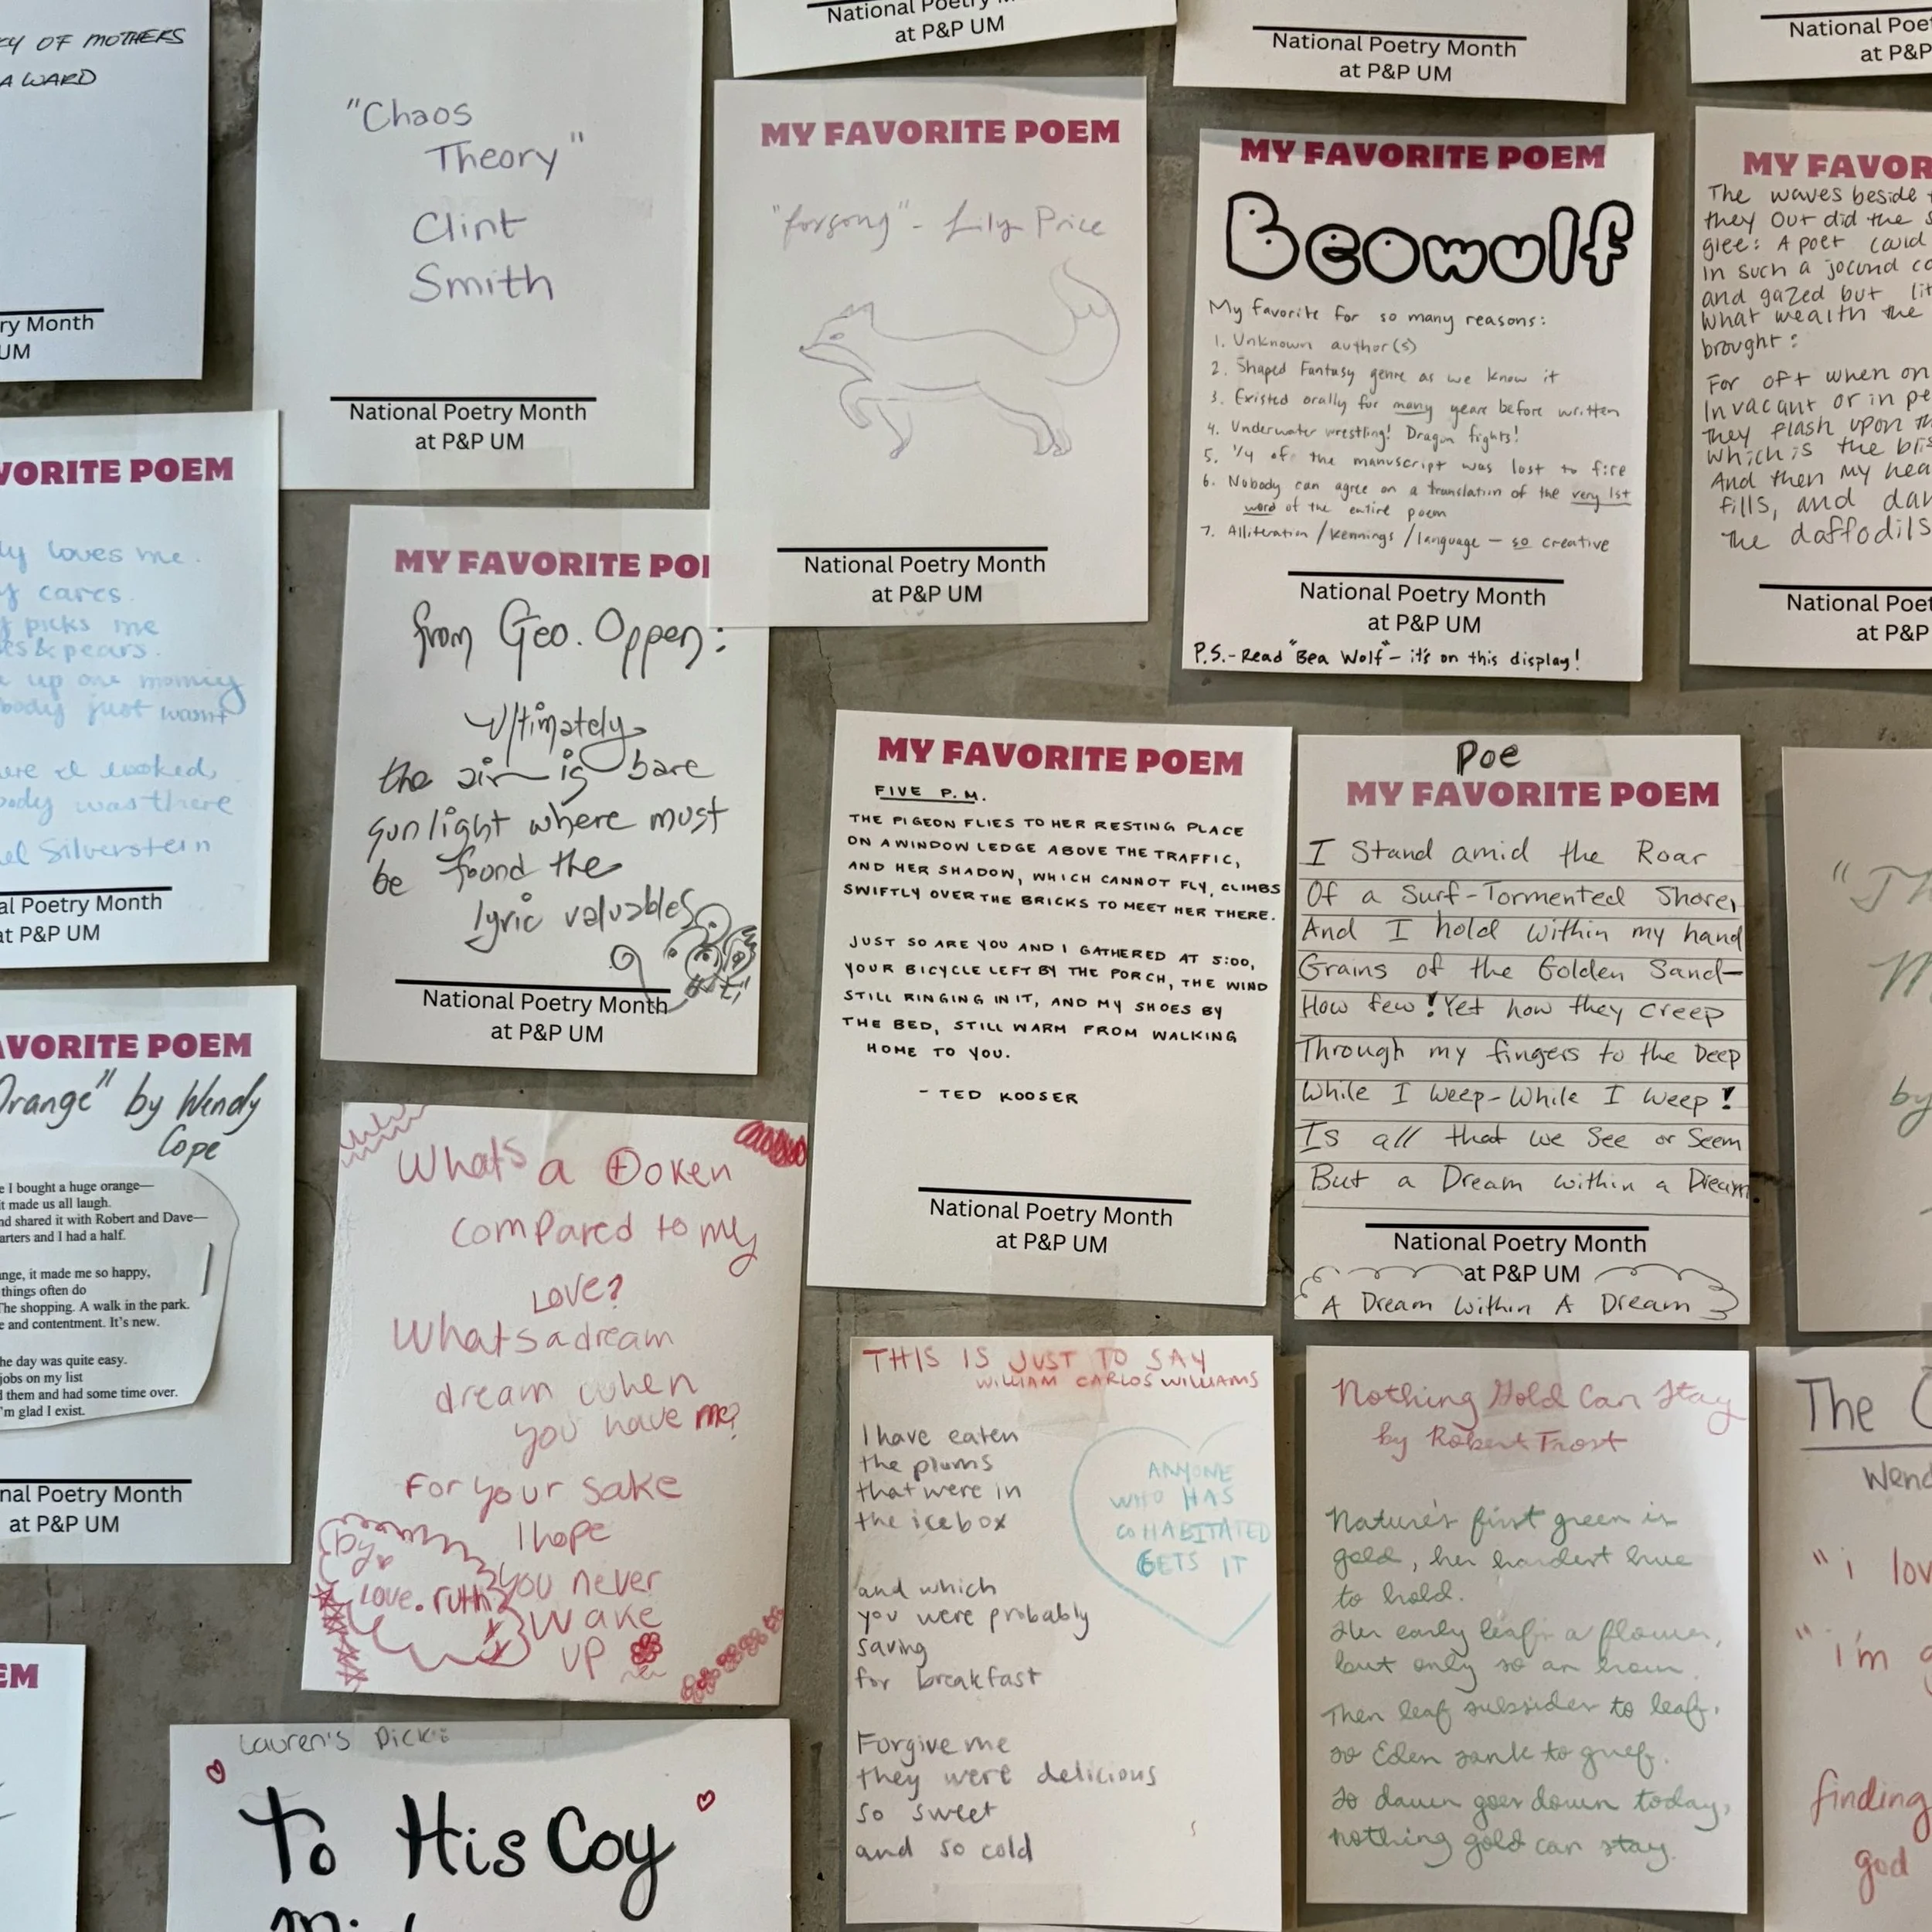 CY OF MOTHERS
A WARD
ry Month
UM
"Chaos
Theory"
Clint
Smith
National Poetry Month
at P&P UM
National Poetry M
at P&P UM
MY FAVORITE POEM
"forsong" - Lily Price
National Poetry Month
at P&P UM
National Poetry Month
at P&P UM
MY FAVORITE POEM
Beowulf
My favorite for so many reasons:
1. Unknown author(s)
2. Shaped Fantasy genre as we know it
3. Existed orally for many years before written
4. Underwater wrestling! Dragon fights!
5. 1/4 of the manuscript was lost to fire
6. Nobody can agree on a translation of the very 1st
word of the entire poem
7. Alliteration/kennings/language - so creative
National Poetry Month
at P&P UM
P.S. - Read "Bea Wolf" - it's on this display!
National Poe
at P&P
MY FAVOR
The waves beside
they Out did the s
glee: A poet could
In such a jocund co
and gazed but lit
What wealth the
brought:
For oft when on
In vacant or in pe
they flash upon th
which is the blis
And then my hea
fills, and dan
the daffodils
National Poet
at P&P
VORITE POEM
ly loves me.
y cares.
y picks me
es & pears.
up one morning
body just wasn't
ere I looked,
body was there
el Silverstein
al Poetry Month
at P&P UM
MY FAVORITE POE
from Geo. Oppen:
Ultimately
the air is bare
sunlight where must
be found the
lyric valuables
National Poetry Month
at P&P UM
MY FAVORITE POEM
FIVE P.M.
THE PIGEON FLIES TO HER RESTING PLACE
ON A WINDOW LEDGE ABOVE THE TRAFFIC,
AND HER SHADOW, WHICH CANNOT FLY, CLIMBS
SWIFTLY OVER THE BRICKS TO MEET HER THERE.
JUST SO ARE YOU AND I GATHERED AT 5:00,
YOUR BICYCLE LEFT BY THE PORCH, THE WIND
STILL RINGING IN IT, AND MY SHOES BY
THE BED, STILL WARM FROM WALKING
HOME TO YOU.
- TED KOOSER
National Poetry Month
at P&P UM
Poe
MY FAVORITE POEM
I Stand amid the Roar
Of a Surf-Tormented Shore,
And I hold within my hand
Grains of the Golden Sand-
How few! Yet how they creep
Through my fingers to the Deep
While I weep-While I weep!
Is all that we see or Seem
But a Dream within a Dream
National Poetry Month
at P&P UM
A Dream Within A Dream
"Th
M
by
AVORITE POEM
Orange" by Wendy
Cope
e I bought a huge orange—
it made us all laugh.
nd shared it with Robert and Dave—
arters and I had a half.
nge, it made me so happy,
things often do
The shopping. A walk in the park.
e and contentment. It's new.
he day was quite easy.
jobs on my list
d them and had some time over.
'm glad I exist.
nal Poetry Month
at P&P UM
Whats a token
compared to my
Love?
Whats a dream
dream when
you have me?
For your sake
I hope
you never
wake
up
by
Love. ruth
THIS IS JUST TO SAY
WILLIAM CARLOS WILLIAMS
I have eaten
the plums
that were in
the icebox
and which
you were probably
saving
for breakfast
Forgive me
they were delicious
so sweet
and so cold
ANYONE
WHO HAS
COHABITATED
GETS IT
Nothing Gold Can Stay
by Robert Frost
Nature's first green is
gold, her hardest hue
to hold.
Her early leafs a flower,
but only so an hour.
Then leaf subsides to leaf.
so Eden sank to grief.
So dawn goes down today,
nothing gold can stay.
The O
Wend
"i lov
"i'm g
finding
god
EM
Lauren's Pick:
To His Coy